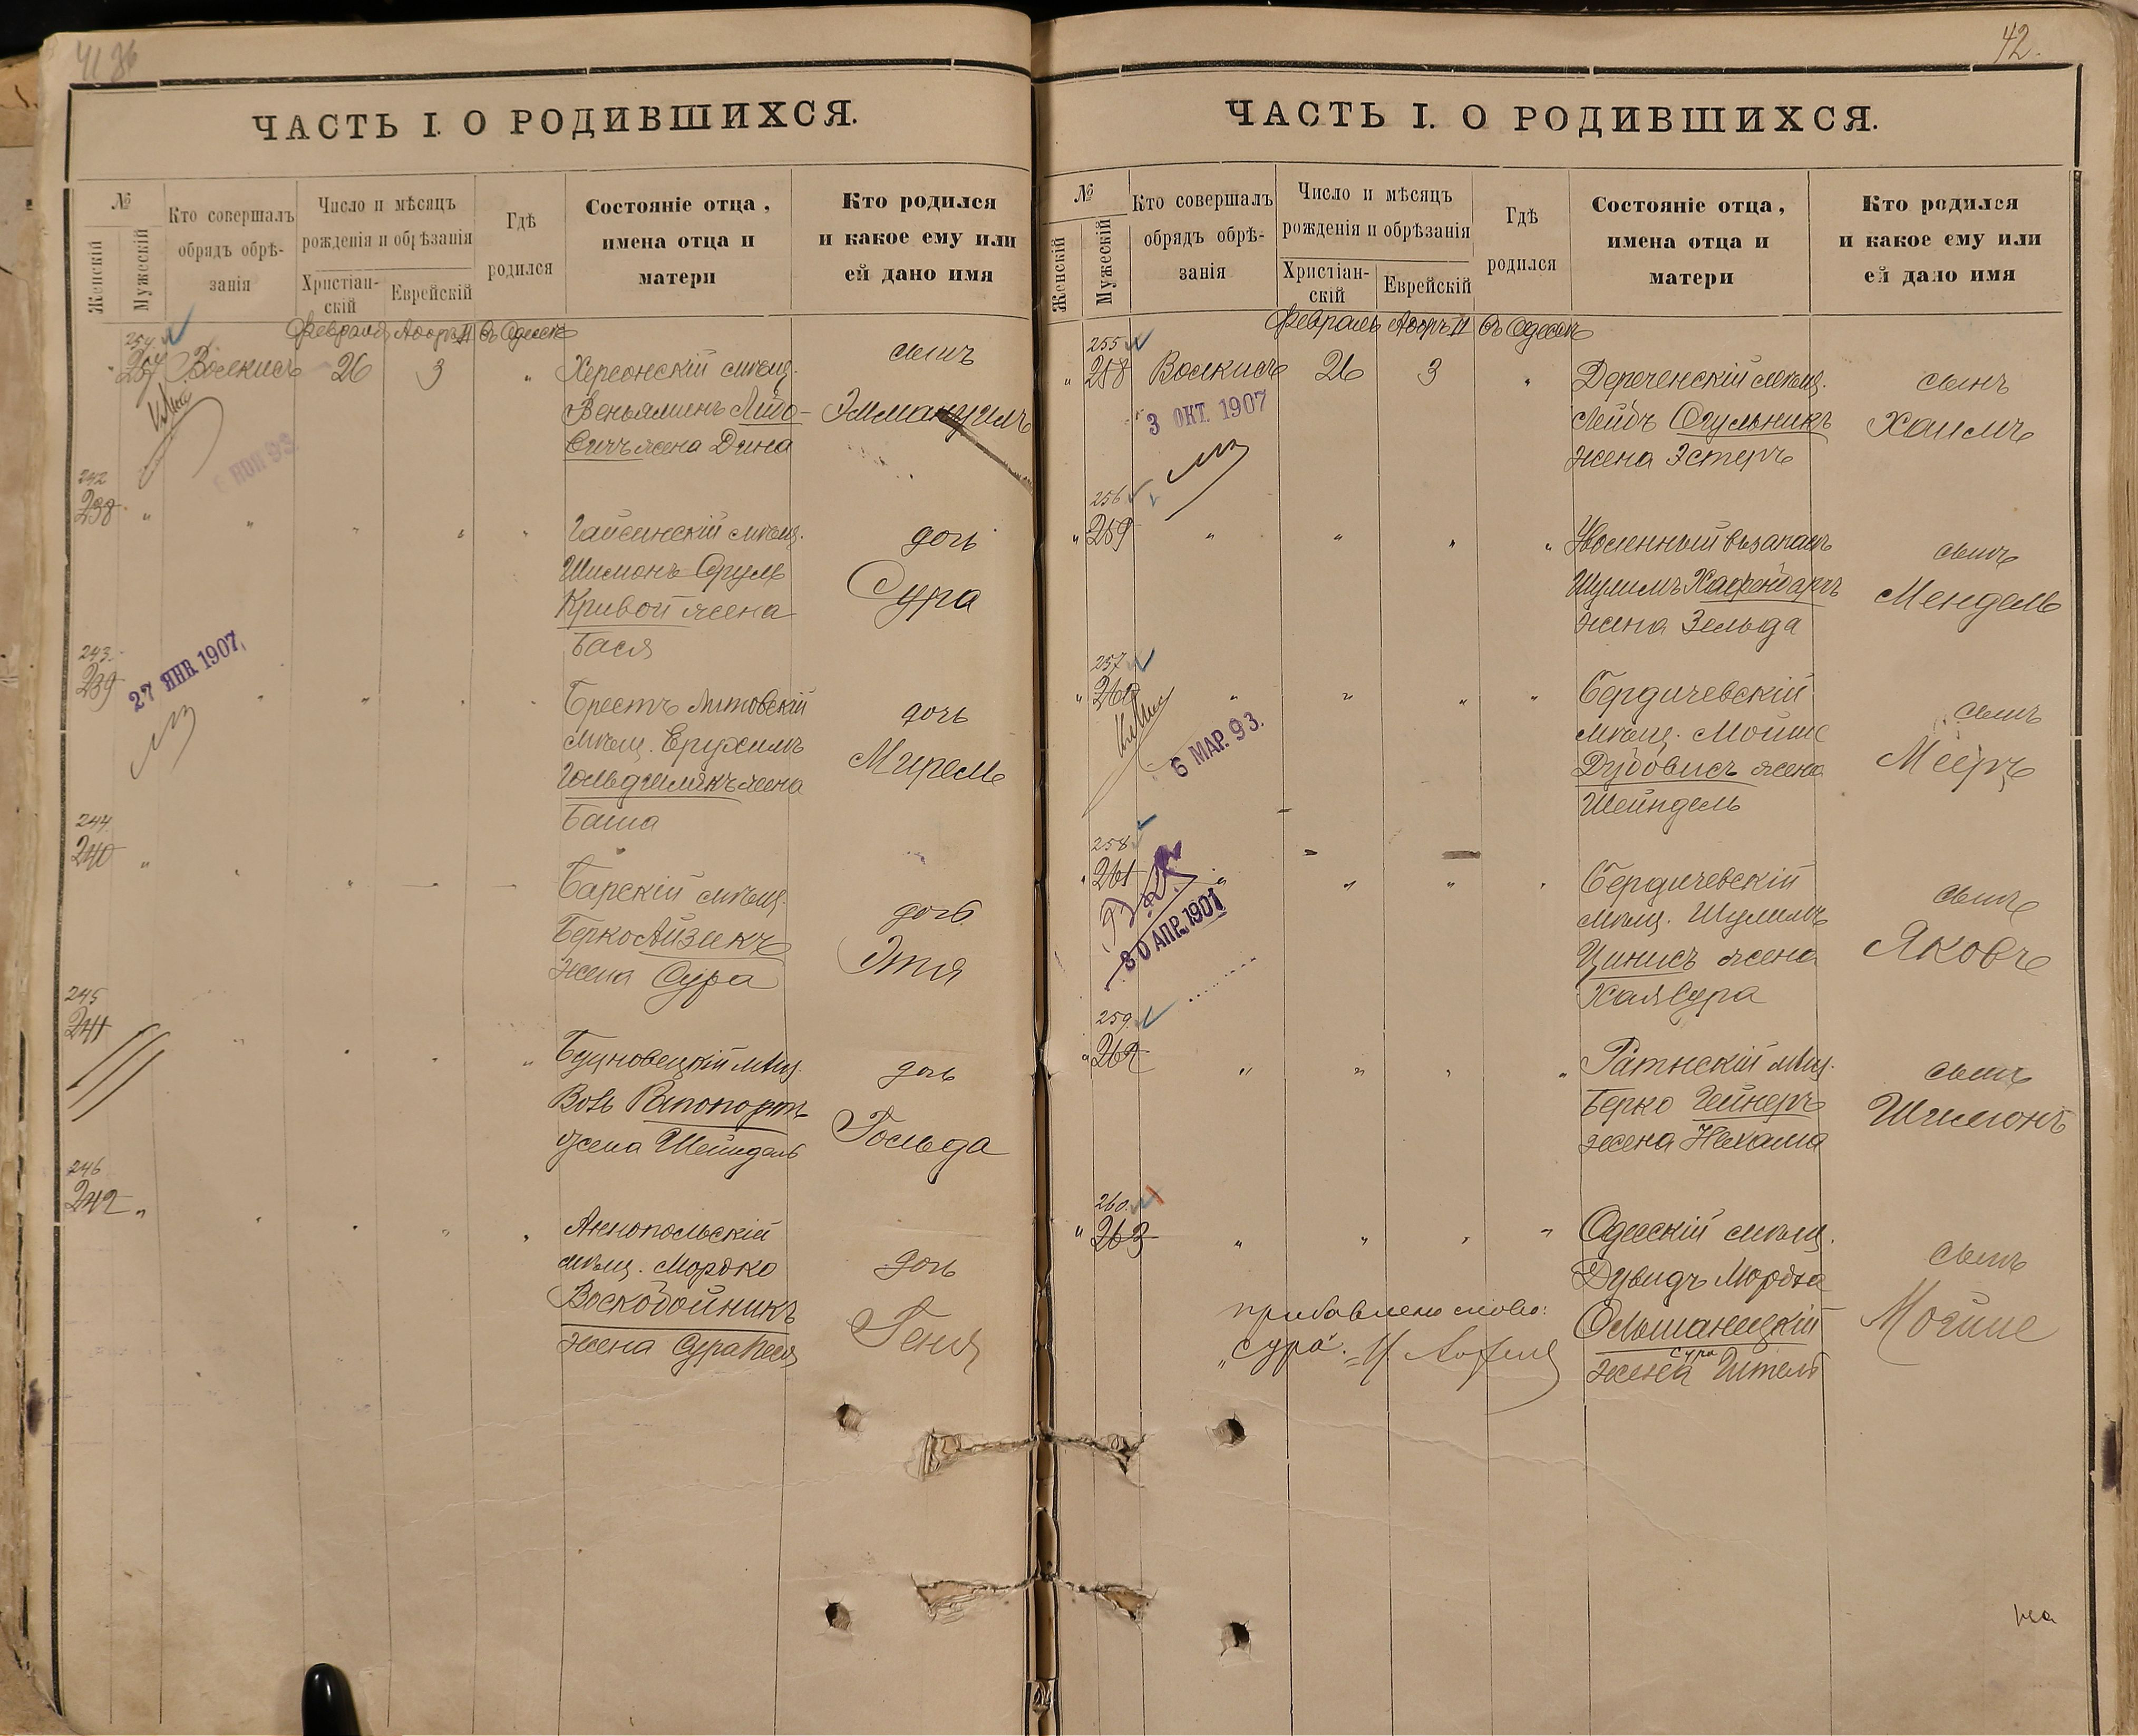 42.
ЧАСТЬ I. О РОДИВШИХСЯ.
№
Женскій
Мужескій
Кто совершалъ
обрядъ обрѣ-
занія
Число и мѣсяцъ
рожденія и обрѣзанія
Христіан-
скій
Еврейскій
Гдѣ
родился
Состояніе отца,
имена отца и
матери
Кто родился
и какое ему или
ей дано имя
Февраля Адоръ II Въ Одессѣ
254
Волкисъ 26 3 " Херсонскій мѣщ.
Веньяминъ Лійбо-
вичъ жена Дина
сынъ
Эммануилъ
242
238
Гайсинскій мѣщ.
Шимонъ Сруль
Кривой жена
Бася
дочь
Сура
243.
239
27 ЯНВ. 1907.
Брестъ Литовскій
мѣщ. Ерухимъ
жена
Баша
дочь
Мирель
244.
240
Барскій мѣщ.
Берко Айзикъ
жена Сура
дочь
Этя
245
241
мѣщ.
Вовъ Рапопортъ
жена Шейндель
дочь
Гольда
246
242
Аннопольскій
мѣщ. Мордко
Воскобойникъ
жена Сура Песя
дочь
Геня
ЧАСТЬ I. О РОДИВШИХСЯ.
№
Женскій
Мужескій
Кто совершалъ
обрядъ обрѣ-
занія
Число и мѣсяцъ
рожденія и обрѣзанія
Христіан-
скій
Еврейскій
Гдѣ
родился
Состояніе отца,
имена отца и
матери
Кто родился
и какое ему или
ей дано имя
Февраль Адоръ II Въ Одессѣ
255
258 Волкисъ 26 3 " Деречинскій мѣщ.
3 ОКТ. 1907
Лейбъ Огульникъ
жена Эстеръ
сынъ
Хаимъ
256
259
Уволенный въ запасъ
Шулимъ
жена Зельда
сынъ
Мендель
257
260
6 МАР. 93.
Бердичевскій
мѣщ. Мойше
Дубовисъ жена
Шейндель
сынъ
Мееръ
258
261
30 АПР. 1901
Бердичевскій
мѣщ. Шулимъ
Цинисъ жена
Хая Сура
сынъ
Яковъ
259.
262
Ратнскій мѣщ.
Берко Гейнеръ
жена Нехама
сынъ
Шимонъ
260.
263
Одесскій мѣщ.
Дувидъ Мордка
Ольшанецкій
Сура
жена Гитель
сынъ
Мойше
прибавлено слово:
„Сура".